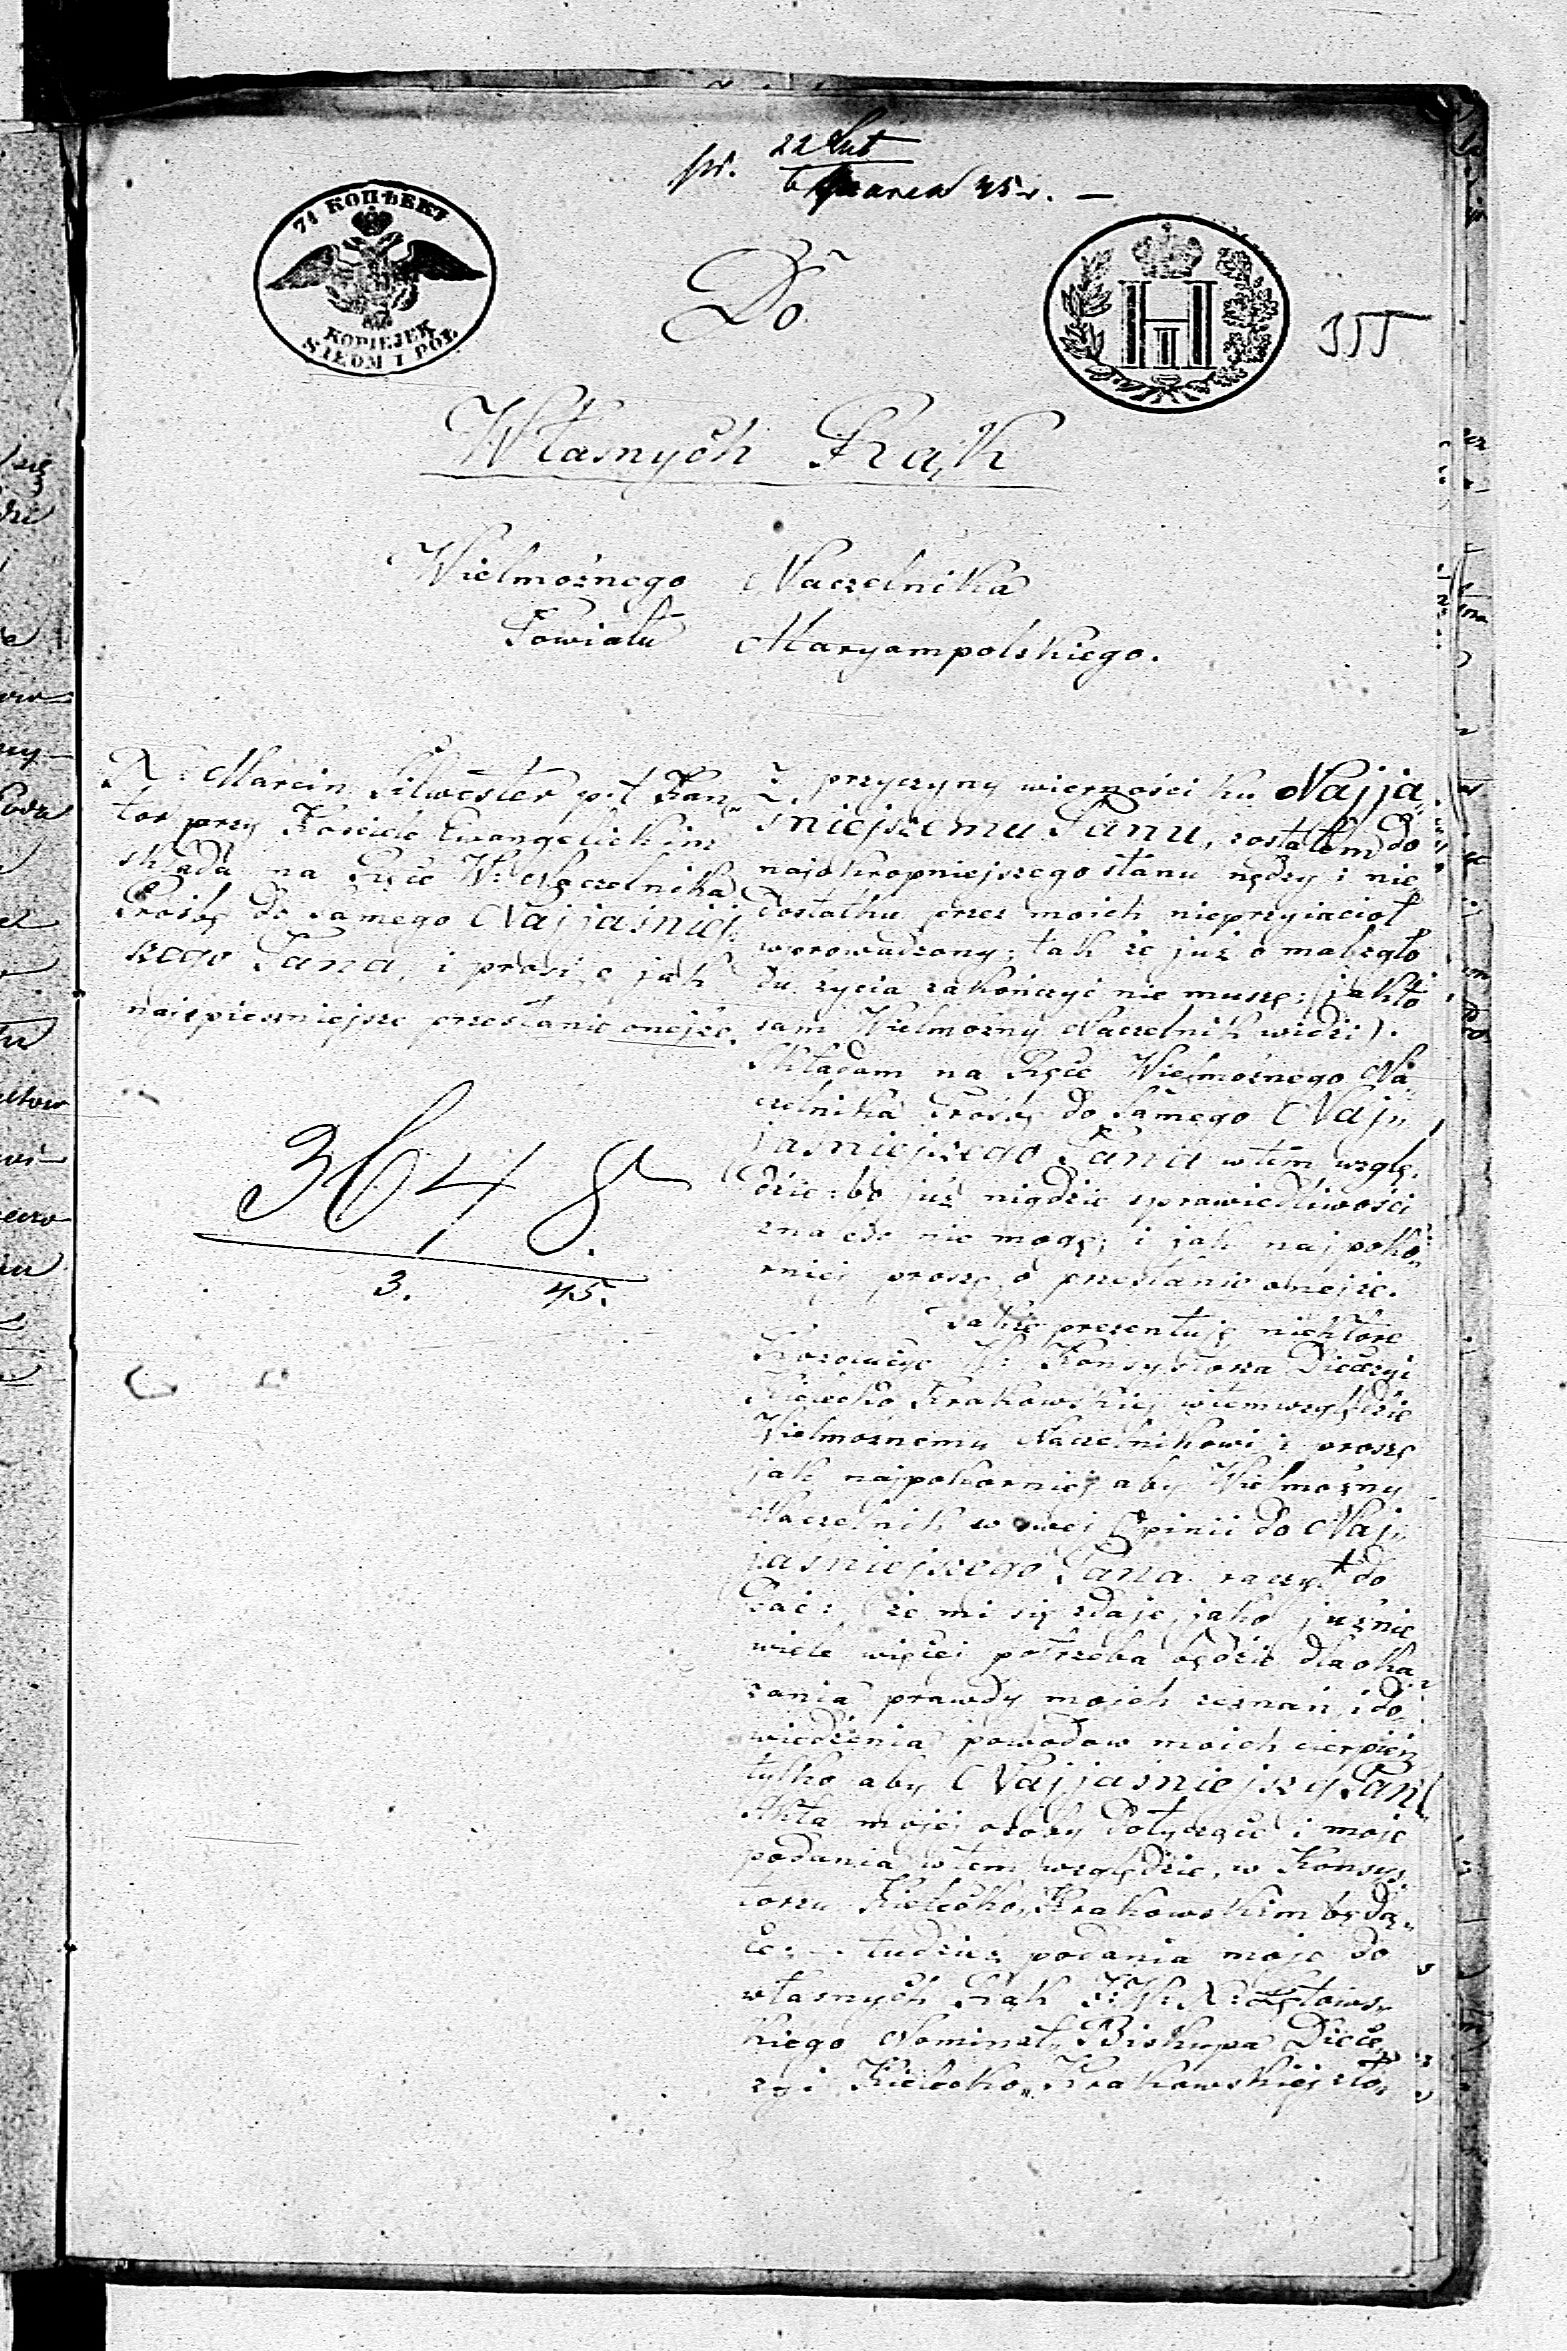 pr. 22 Lut
6 Marca 45 r. —
7½ КОПѢЕКЪ
KOPIEJEK
SIEDM I PÓŁ
Do
H I
355
Własnych Rąk
Wielmożnego Naczelnika
Powiatu Maryampolskiego.
X: Marcin Silwester p. t. Kan„
tor przy Kościele Ewangelickim
składa na Ręce W: Naczelnika
Prośbę do samego Najjaśniej
szego Pana, i prosi o jak
najspieszniejsze przesłanie onejże.
3648
3. 45.
Z przyczyny wierności ku Najja„
śniejszemu Panu, zostałem do
najokropniejszego stanu nędzy i nie„
dostatku przez moich nieprzyiacioł
wprowadzony; tak że już o mał z gło
du życia zakończyć nie muszę; (jak to
sam Wielmożny Naczelnik widzi).
Składam na Ręce Wielmożnego Na„
czelnika Prośbę do Samego Naj„
jaśniejszego Pana w tem wzglę„
dzie: bo już nigdzie sprawiedliwości
znaleść nie mogę; i jak najpoko„
rniej proszę o przesłanie onejże.
Także prezentuję niektóre
Konsystorza Diecezyi
Kielecko Krakowskiej w tem względzie
Wielmożnemu Naczelnikowi i proszę
jak najpokorniej aby Wielmożny
Naczelnik w swej Opinii do Naj„
jaśniejszego Pana raczył do
dać: że mi się zdaje, jako już nie
wiele więcej potrzeba będzie dla oka„
zania prawdy moich zeznań i do„
wiedzenia powodow moich cierpień
tylko aby Najjaśniejszy Pan
Akta mojej osoby dotyczące i moje
podania w tem względzie, w Konsys„
torzu Kielecko„Krakowskim będą„
ce: — tudzież podania moje do
własnych Rąk J: W: X: Łętows„
kiego Nominat„ Biskupa Diece„
zyi Kielecko„Krakowskiej zło„